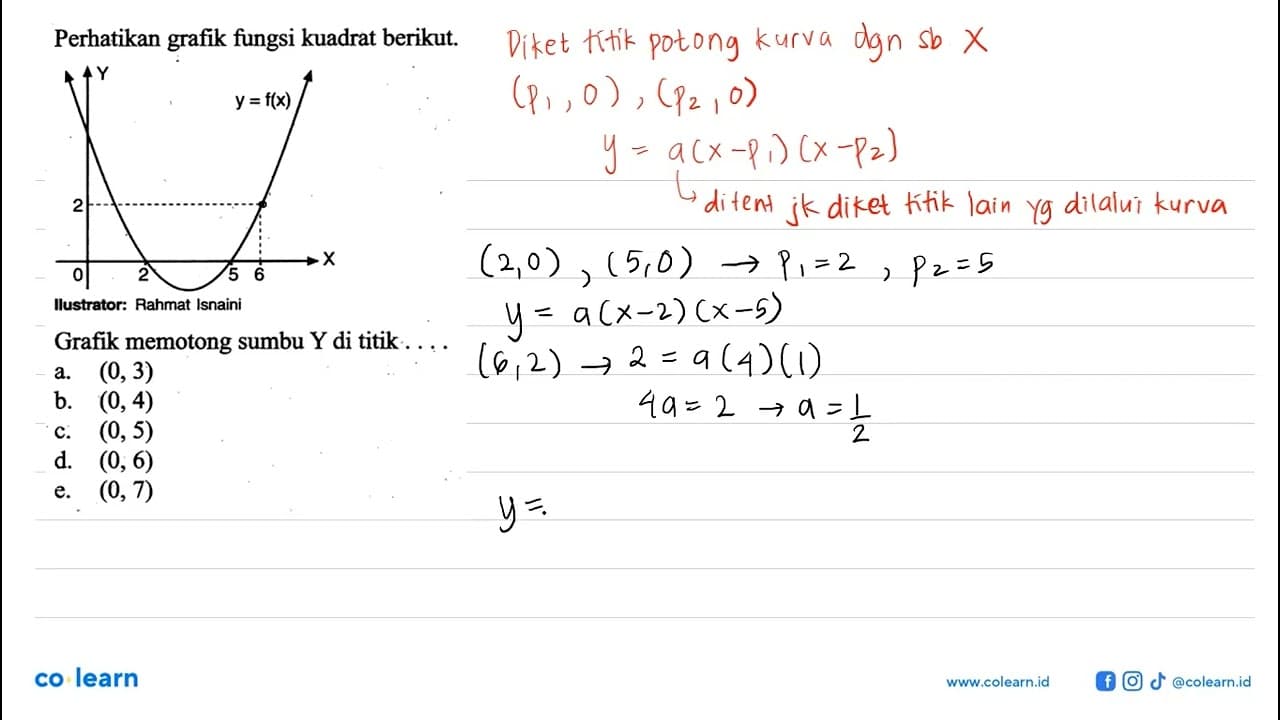 Perhatikan grafik fungsi kuadrat berikut.
Y
y = f(x)
2
X
0 2 5 6
Ilustrator: Rahmat Isnaini
Grafik memotong sumbu Y di titik . . . .
a. (0, 3)
b. (0, 4)
c. (0, 5)
d. (0, 6)
e. (0, 7)
Diket titik potong kurva dgn sb X
(p₁, 0), (p₂, 0)
y = a(x-p₁)(x-p₂)
↳ ditent jk diket titik lain yg dilalui kurva
(2,0), (5,0) → p₁ = 2, p₂ = 5
y = a(x-2)(x-5)
(6,2) → 2 = a(4)(1)
4a = 2 → a = 1/2
y =
co learn
www.colearn.id
@colearn.id